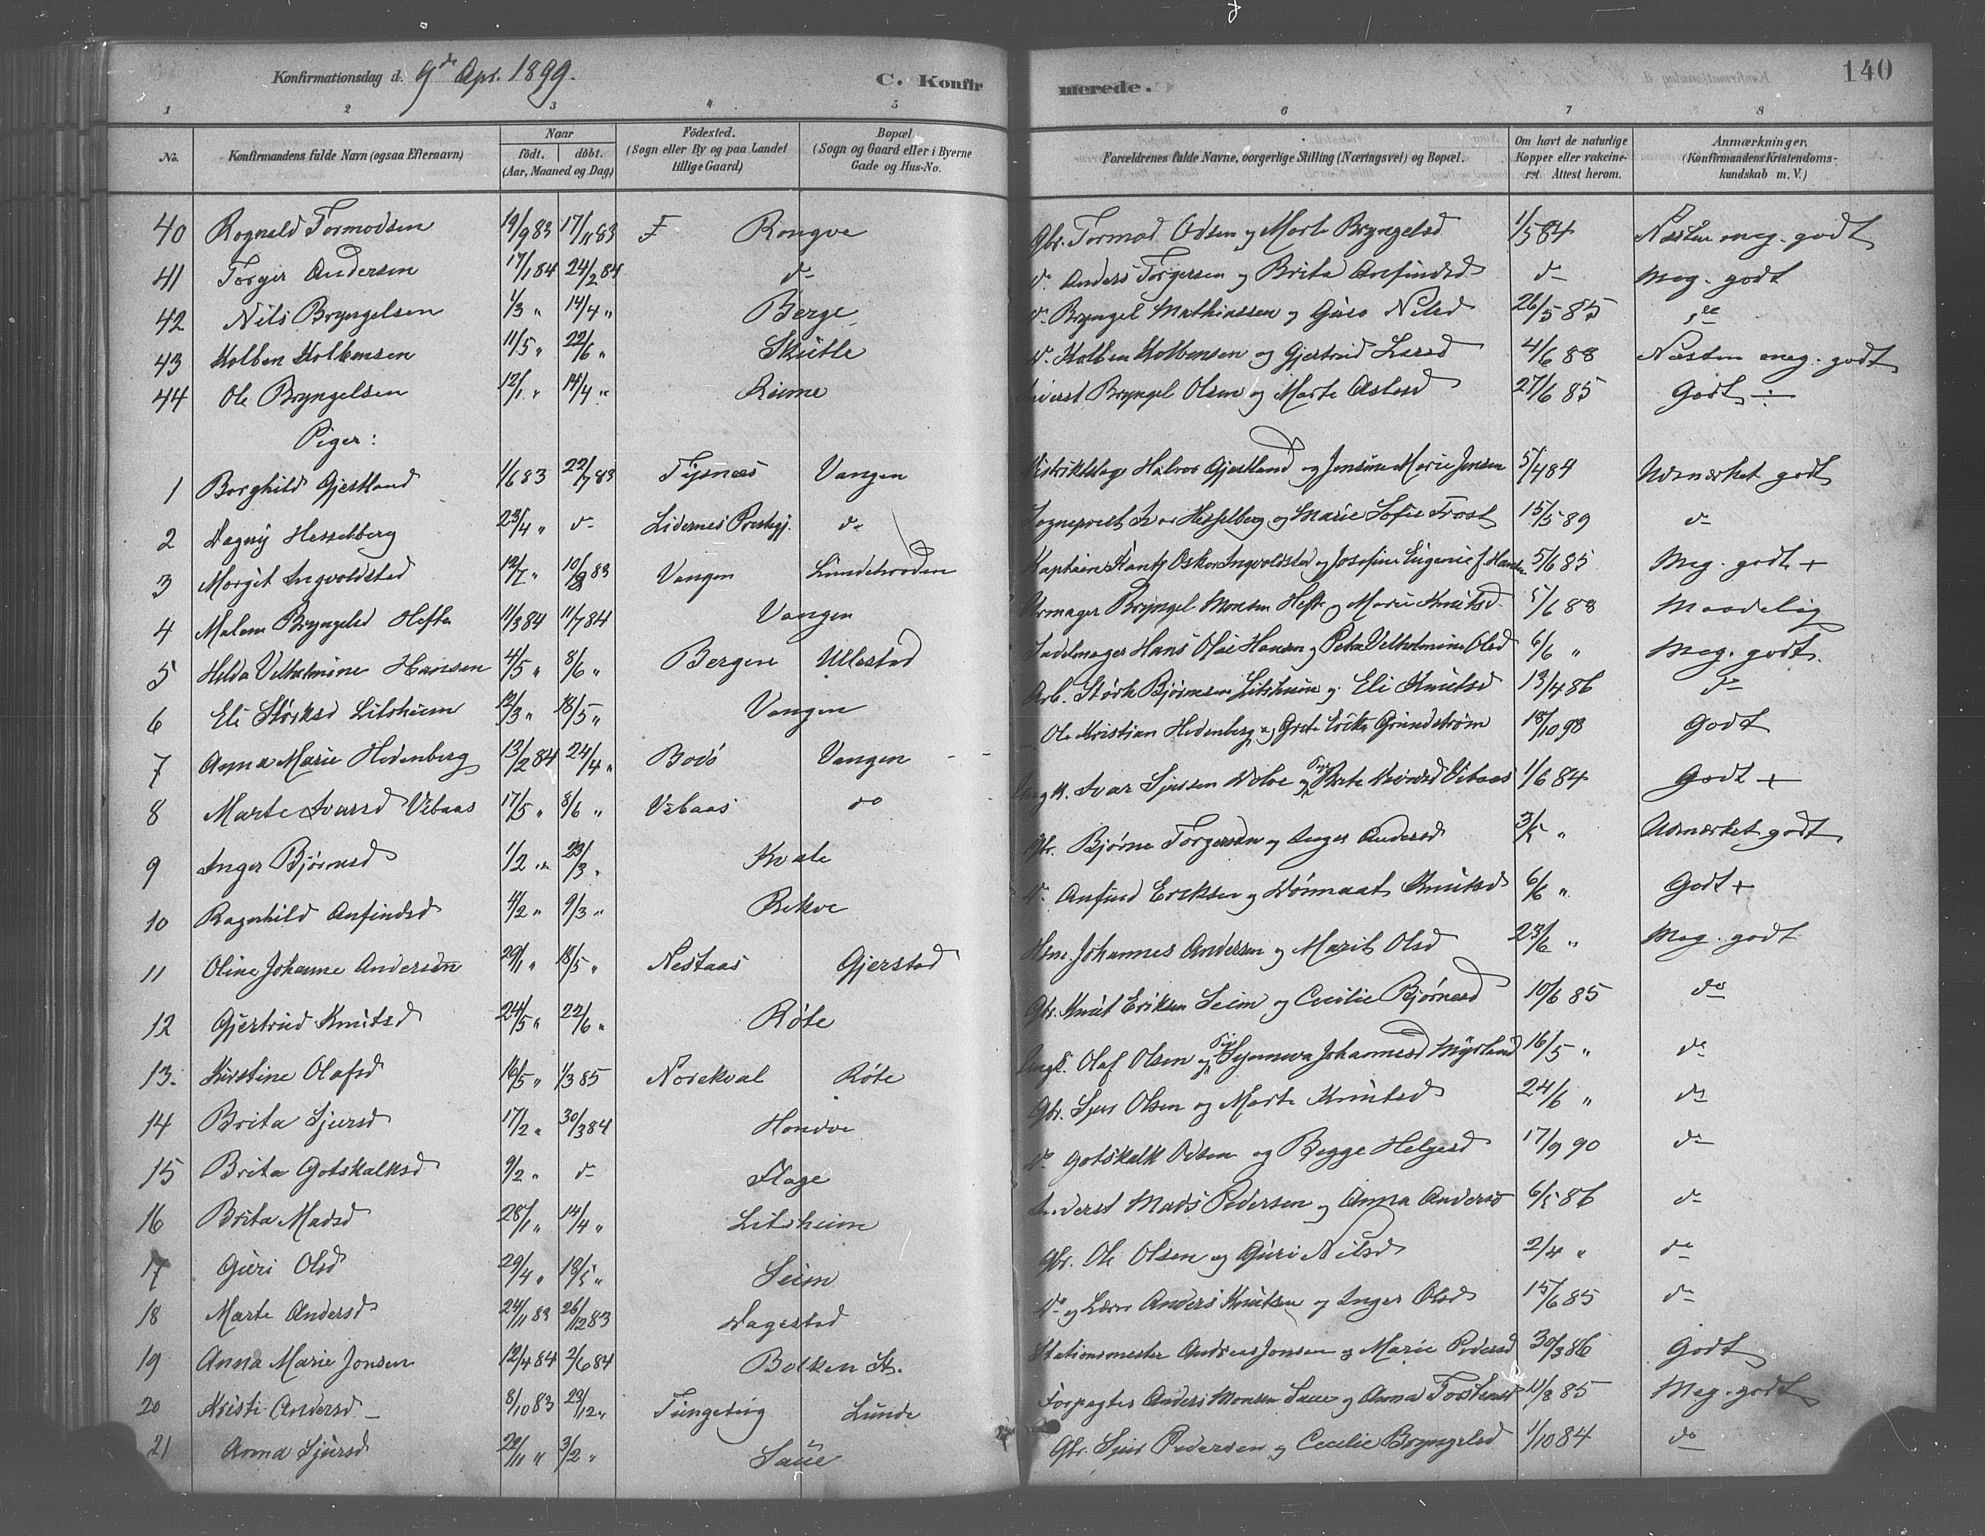 Konfirmationsdag d. 9de Apr. 1899.
C. Konfirmerede.
140
1 2 3 4 5 6 7 8
No.
Konfirmandens fulde Navn (ogsaa Efternavn)
Naar
födt. döbt.
(Aar, Maaned og Dag)
Födested.
(Sogn eller By og paa Landet
tillige Gaard)
Bopæl
(Sogn og Gaard eller i Byerne
Gade og Hus-No.
Forældrenes fulde Navne, borgerlige Stilling (Næringsvei) og Bopæl.
Om havt de naturlige
Kopper eller vakcine-
ret Attest herom.
Anmærkninger.
(Konfirmandens Kristendoms-
kundskab m. V.)
40 Rognald Tormodsen 19/9 83 17/11 83 F Rongve Gbr. Tormod Odsen og Marte Bryngelsd 1/5 84 Næsten meg. godt
41 Torger Andersen 17/1 84 24/2 84 do do Anders Torgersen og Brita Anfindsd do Meg. godt
42 Nils Bryngelsen 1/3 " 14/4 " Berge do Bryngel Mathiassen og Guro Nilsd 26/5 85 do
43 Kolben Kolbensen 11/5 " 22/6 " Skutle do Kolben Kolbensen og Gjertrud Larsd 4/6 88 Næsten meg. godt
44 Ole Bryngelsen 12/1 " 14/4 " Rime Inderst Bryngel Olsen og Marte 27/6 85 Godt ÷
Piger:
1 Borghild Gjestland 1/6 83 22/7 83 Tysnæs Vangen Distriktslæge Halvor Gjestland og Jensine Marie Jensen 5/4 84 Udmærket godt
2 Dagny Hesselberg 23/4 " do Lidernes Prestegj. do Sogneprest Hesselberg og Marie Sofie Frost 15/5 89 do
3 Margit Ingvoldstad 12/7 " 83 Vangen Kaptein Oskar Ingvoldstad og Josefine Eugenie J. Hansen 5/6 85 Meg. godt +
4 Malene Bryngelsd Hefte 11/3 84 11/7 84 Vangen Urmager Bryngel Monsen Hefte og Marie Knutsd 5/6 88 Maadelig
5 Helda Vilhelmine Hansen 4/5 " 8/6 " Bergen Ullestad Sadelmager Hans Olai Hansen og Petra Vilhelmine Olsd 6/6 " Meg. godt.
6 Eli Størksd Litsheim 12/3 " 18/5 " Vangen Arb. Størk Bjørnsen Litsheim og Eli Knutsd 13/4 86 do
7 Anna Marie Hedenberg 13/2 84 24/4 " Bodö Vangen Ole Kristian Hedenberg og Grete Erika Grundstrøm 18/10 98 Godt
8 Marte Ivarsd Vibaas 17/5 " 8/6 " Vibaas do Ung k. Ivar Sjursen og Pige Brita Vibaas 1/6 84 Godt +
9 Inger Bjørnsd 1/2 " 23/3 " Kvale Gbr. Bjørne Torgersen og Inger Andersd 3/5 " Udmærket godt
10 Ragnhild Anfindsd 4/2 " 9/3 " Rekve do Anfind Eriksen og Knutsd 6/6 " Godt +
11 Oline Johanne Andersen 29/1 " 18/5 " Nestaas Gjerstad Hsm. Johannes Andersen og Marit Olsd 23/6 " Meg. godt
12 Gjertrud Knutsd 24/5 " 22/6 " Røte Gbr. Knut Eriksen Seim og Cecilie Bjørnesd 10/6 85 do
13. Kirstine Olafsd 16/5 " 1/3 85 Norekval Røte Ungk. Olaf Olsen og Pige Synneva Johannesd Myrland 16/5 " do
14 Brita Sjursd 17/2 " 30/3 84 Hondve Gbr. Sjur Olsen og Marte Knutsd 24/6 " do
15 Brita Gotskalksd 9/2 " do Flage do Gotskalk Odsen og Begge Helgesd 17/9 90 do
16 Brita Madsd 28/1 " 14/4 " Litsheim Inderst Mads Pedersen og Anna Andersd 6/5 86 do
17 Guri Olsd 29/4 " 18/5 " Seim Gbr. Ole Olsen og Guri Nilsd 2/4 " do
18 Marte Andersd 24/11 83 26/12 83 Dagestad do og Lærer Anders Knutsen og Inger Olsd 15/6 85 do
19 Anna Marie Jonsen 12/4 84 2/6 84 Bolken St. Stationsmester Andreas Jonsen og Marie Pedersd 30/3 86 Godt
20 Kristi Andersd 8/10 83 23/12 " Tungeteig Lunde Forpagter Anders Monsen Saue og Anna Torstensd 11/8 85 Meg. godt
21 Anna Sjursd 22/11 " 3/2 " Saue Gbr. Sjur Pedersen og Cecilie Bryngelsd 1/10 84 do